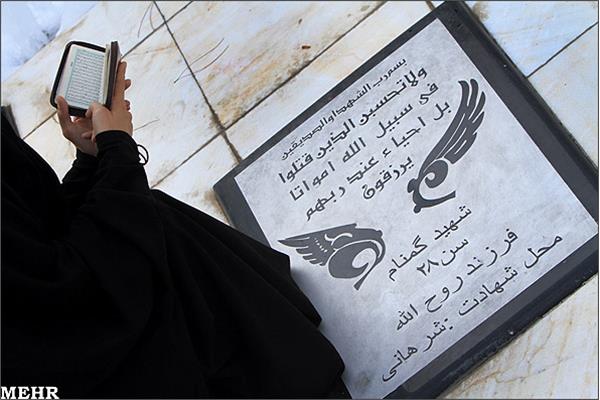 بسم رب الشهداء والصدیقین
ولا تحسبن الذین قتلوا
فی سبیل الله امواتا
بل احیاء عند ربهم
یرزقون
شهید گمنام
سن ۲۸
فرزند روح الله
محل شهادت : شرهانی
MEHR